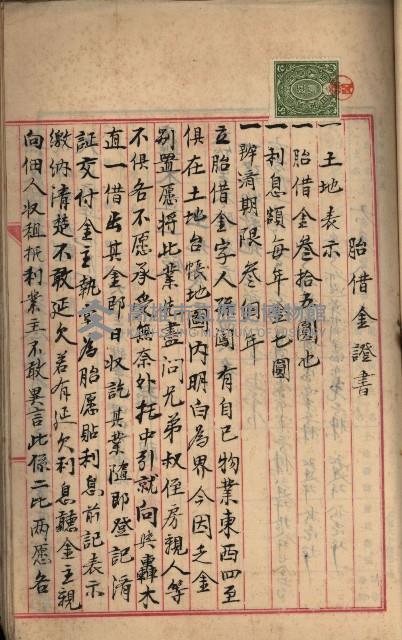 胎借金證書
一土地表示
一胎借金叁拾五圓也
一利息額每年金七圓
一辨濟期限叁個年
立胎借金字人張有自己物業東西四至
俱在土地台帳地圖內明白為界今因乏金
別置愿將此業先盡问兄弟叔侄房親人等
不俱各不愿承受無奈外托中引就向與轟木
直一借出其金即日收訖其業隨即登記清
証交付金主執字為胎愿貼利息前記表示
繳納清楚不敢延欠若有延欠利息聽金主親
向佃人收租振利業主不敢異言此係二比兩愿各
高雄市立歷史博物館